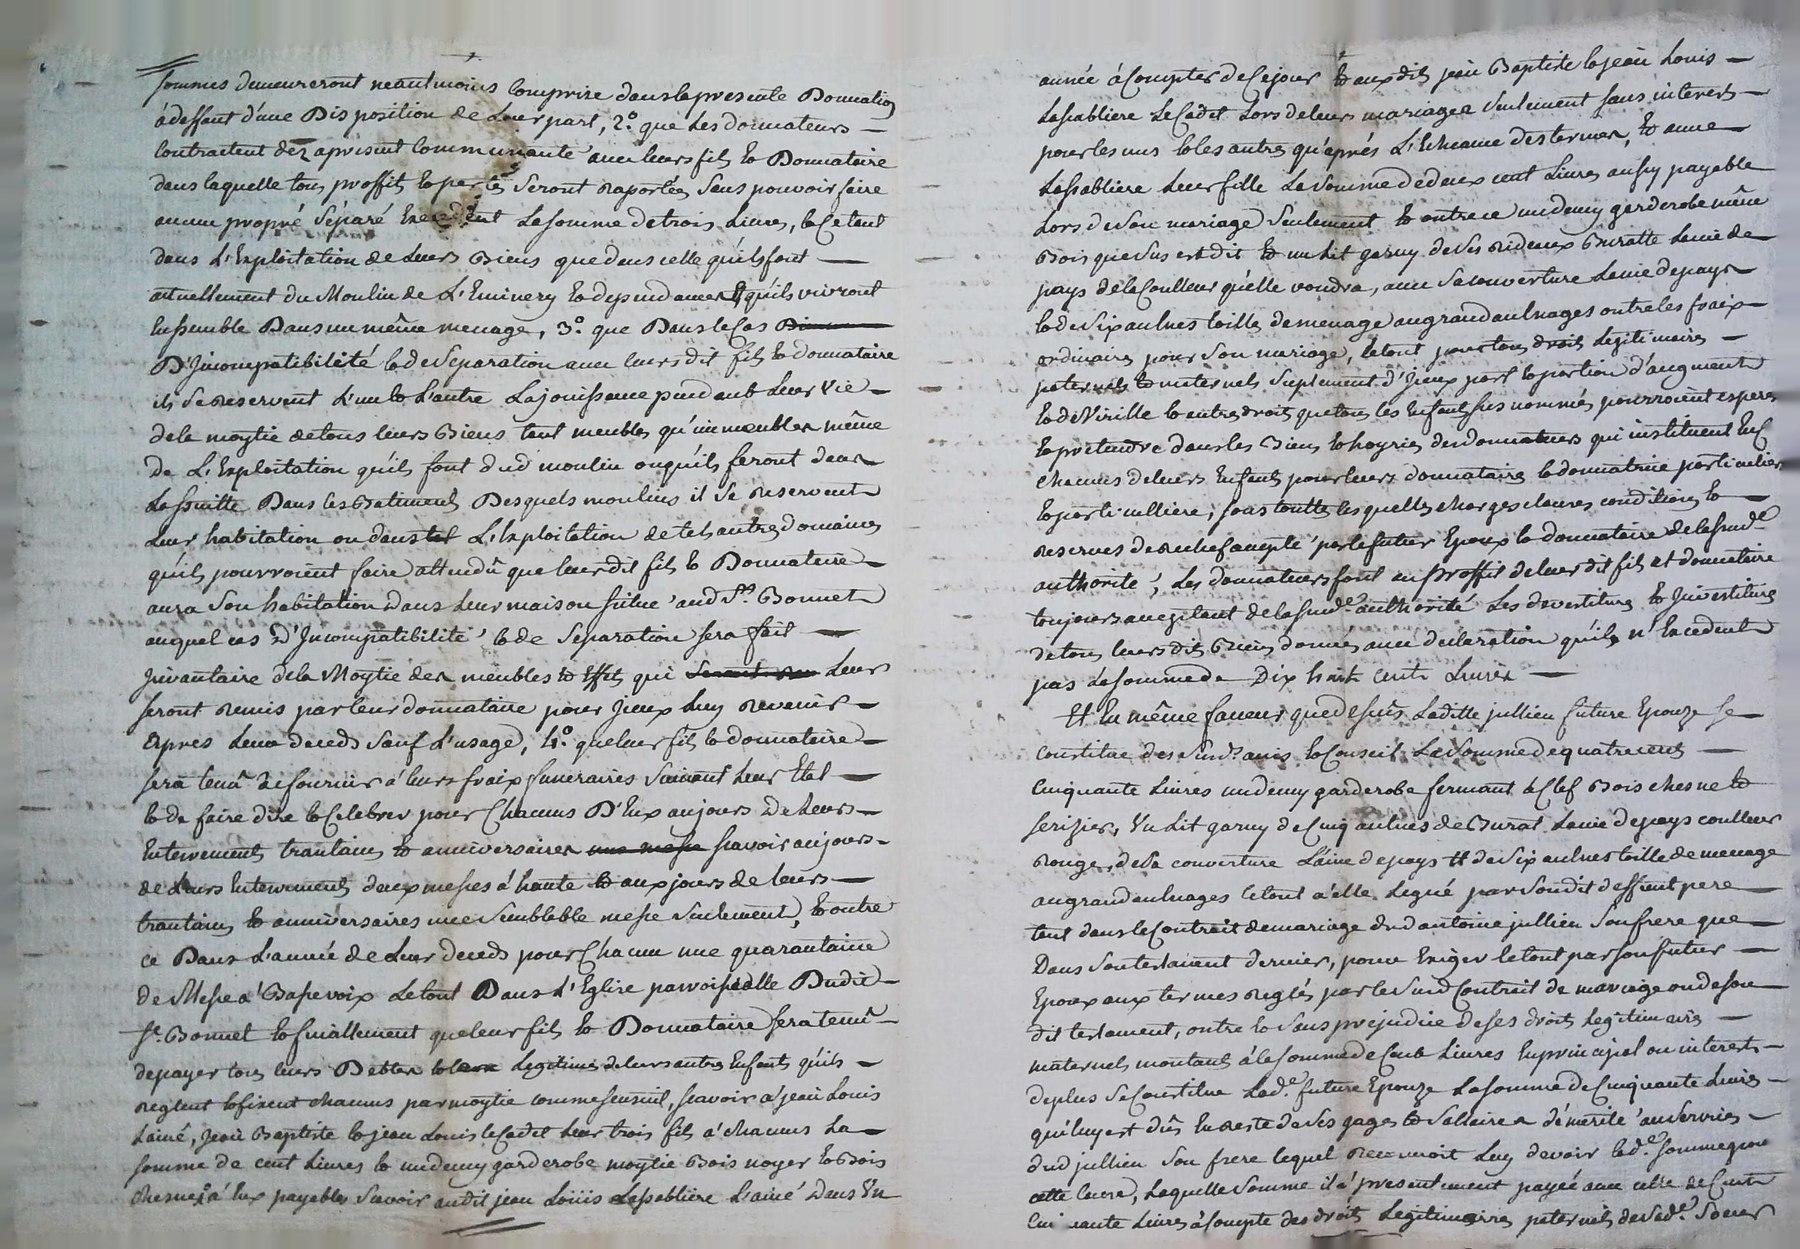 sommes demeureront neautmoins comprise dans la presente Donnation
à deffaut d'une Disposition de Leur part, 2.° que Les donnateurs
contractent dez apresent Communauté avec leurs fils et Donnataire
dans laquelle tous proffits et pertes Seront raportés Sans pouvoir faire
aucun propre Séparé Exedent La somme de trois Livres, et Ce tant
dans L'Exploitation de Leurs Biens que dans celle qu'ils font
actuellement du Moulin de L'Eminery et dependances et qu'ils vivront
Ensemble Dans un même menage, 3.° que Dans le Cas
D'Jncompatibilité et de Separation avec leursdit fils et donnataire
ils Se reservent L'un et L'autre La jouissance pendant Leur Vie
de la moytie de tous leurs Biens tant meubles qu'immeubles même
De L'Exploitation qu'ils font dud moulin ou qu'ils feront dans
La suitte Dans les Batiments Desquels moulins il Se reservent
Leur habitation ou dans L'Exploitation de tels autres domaines
qu'ils pourroient faire attendû que leur dit fils et Donnataire
aura Son habitation Dans Leur maison situe aud St. Bonnet
auquel cas D'Jncompatibilité et de Separation sera fait
Jnvantaire de la Moytie des meubles et Effets qui Leur
seront remis par leur donnataire pour Jceux Luy revenir
apres Leur deceds Sauf L'usage, 4.° que leur fils et donnataire
sera tenû de fournir à leurs fraix funeraires Suivant Leur Etat
et de faire dire et Celebrer pour Chacuns D'Eux aujours De leurs
Enterrements trantains et anniversaires scavoir aujours
de Leurs Enterrements deux messes à haute et aux jours de leurs
trantains et anniversaires une Semblable messe Seulement, et outre
ce Dans L'année de Leur deceds pour Chacun une quarantaine
de Messe à Basse voix Le tout Dans L'Eglise parroissialle Dudit
St. Bonnet et finallement que leur fils et Donnataire sera tenû
de payer tous leurs Debtes Legitimes de leurs autres Enfants qu'ils
reglent et fixent chacuns par moytie comme sensuit, scavoir à jean Louis
Lainé, Jean Baptiste et jean Louis le Cadet Leur trois fils à chacuns La
somme de cent Livres et un demy garderobe moytie Bois noyer et Bois
chesne, à Eux payables Savoir audit jean Louis Lassabliere L'ainé Dans Un
année à Compter de Ce jour et auxdits jean Baptiste et jean Louis
Lassabliere Le Cadet Lors de leurs mariages Seulement sans interets
pour les uns et les autres qu'après L'Echeance des termes, et a une
Lassabliere Leur fille La Somme de deux cent Livres aussy payable
Lors de Son mariage Seulement et outre ce un demy garderobe même
Bois que Sus est dit et un Lit garny de Ses rideaux Buratte Laine de
pays de la Coulleur qu'elle voudra, avec Sa couverture Laine de pays
et de Six aulnes toille de menage au grand aulnages outre les fraix
ordinaires pour Son mariage, le tout pour tous droits Legitimaires
paternels et maternels Suplement d'Jceux part et portion d'augment
et de Virille et autres droits que tous les Enfants sus nommés pourroient esperer
et pretendre dans les Biens et hoyries des donnateurs qui instituent
chacuns de leurs Enfants pour leurs donnataire et donnatrice particulier
et particulliere, sous touttes lesquelles charges clauses conditions et
reserves de rechef accepté par le futur Epoux et donnataire de la sud.e
authorité, Les donnateurs font au proffit de leur dit fils et donnataire
toujours acceptant de la sud.e authorité Les devestiture et Jnvestiture
de tous leurs dits Biens donnés avec declaration qu'ils n'Excedent
pas La somme de Dix huit cents Livres
Et En même faveur que dessus Laditte jullien future Epouze se
constitue des Susd. avis et Conseil La Somme de quatre cent
Cinquante Livres un demy garderobe fermant à Clef Bois chesne et
serizier, Un Lit garny de Cinq aulnes de Burat Laine de pays coulleur
rouge, de Sa couverture Laine de pays et de Six aulnes toille de menage
au grand aulnages le tout à elle Legué par Son dit deffunt pere
tant dans le Contrat de mariage dud antoine jullien Son frere que
Dans Son testament dernier, pour Exiger le tout par son futur
Epoux aux termes reglés par le Susd Contrat de mariage ou de son
dit testament, outre et Sans prejudice de ses droits Legitimaires
maternels montants à la somme de Cent Livres En principal ou interets
de plus Se Constitue Lad.e future Epouze La somme de Cinquante Livres
qui luy est düe En reste de Ses gages et Sallaires demerité au Service
dud jullien Son frere lequel reconnoit Luy devoir lad.e somme pour
cette Cause, Laquelle Somme il à presentement payée avec celle de Cent
Cinquante Livres à Compte des droits Legitimaires paternels de Sad.e Soeur